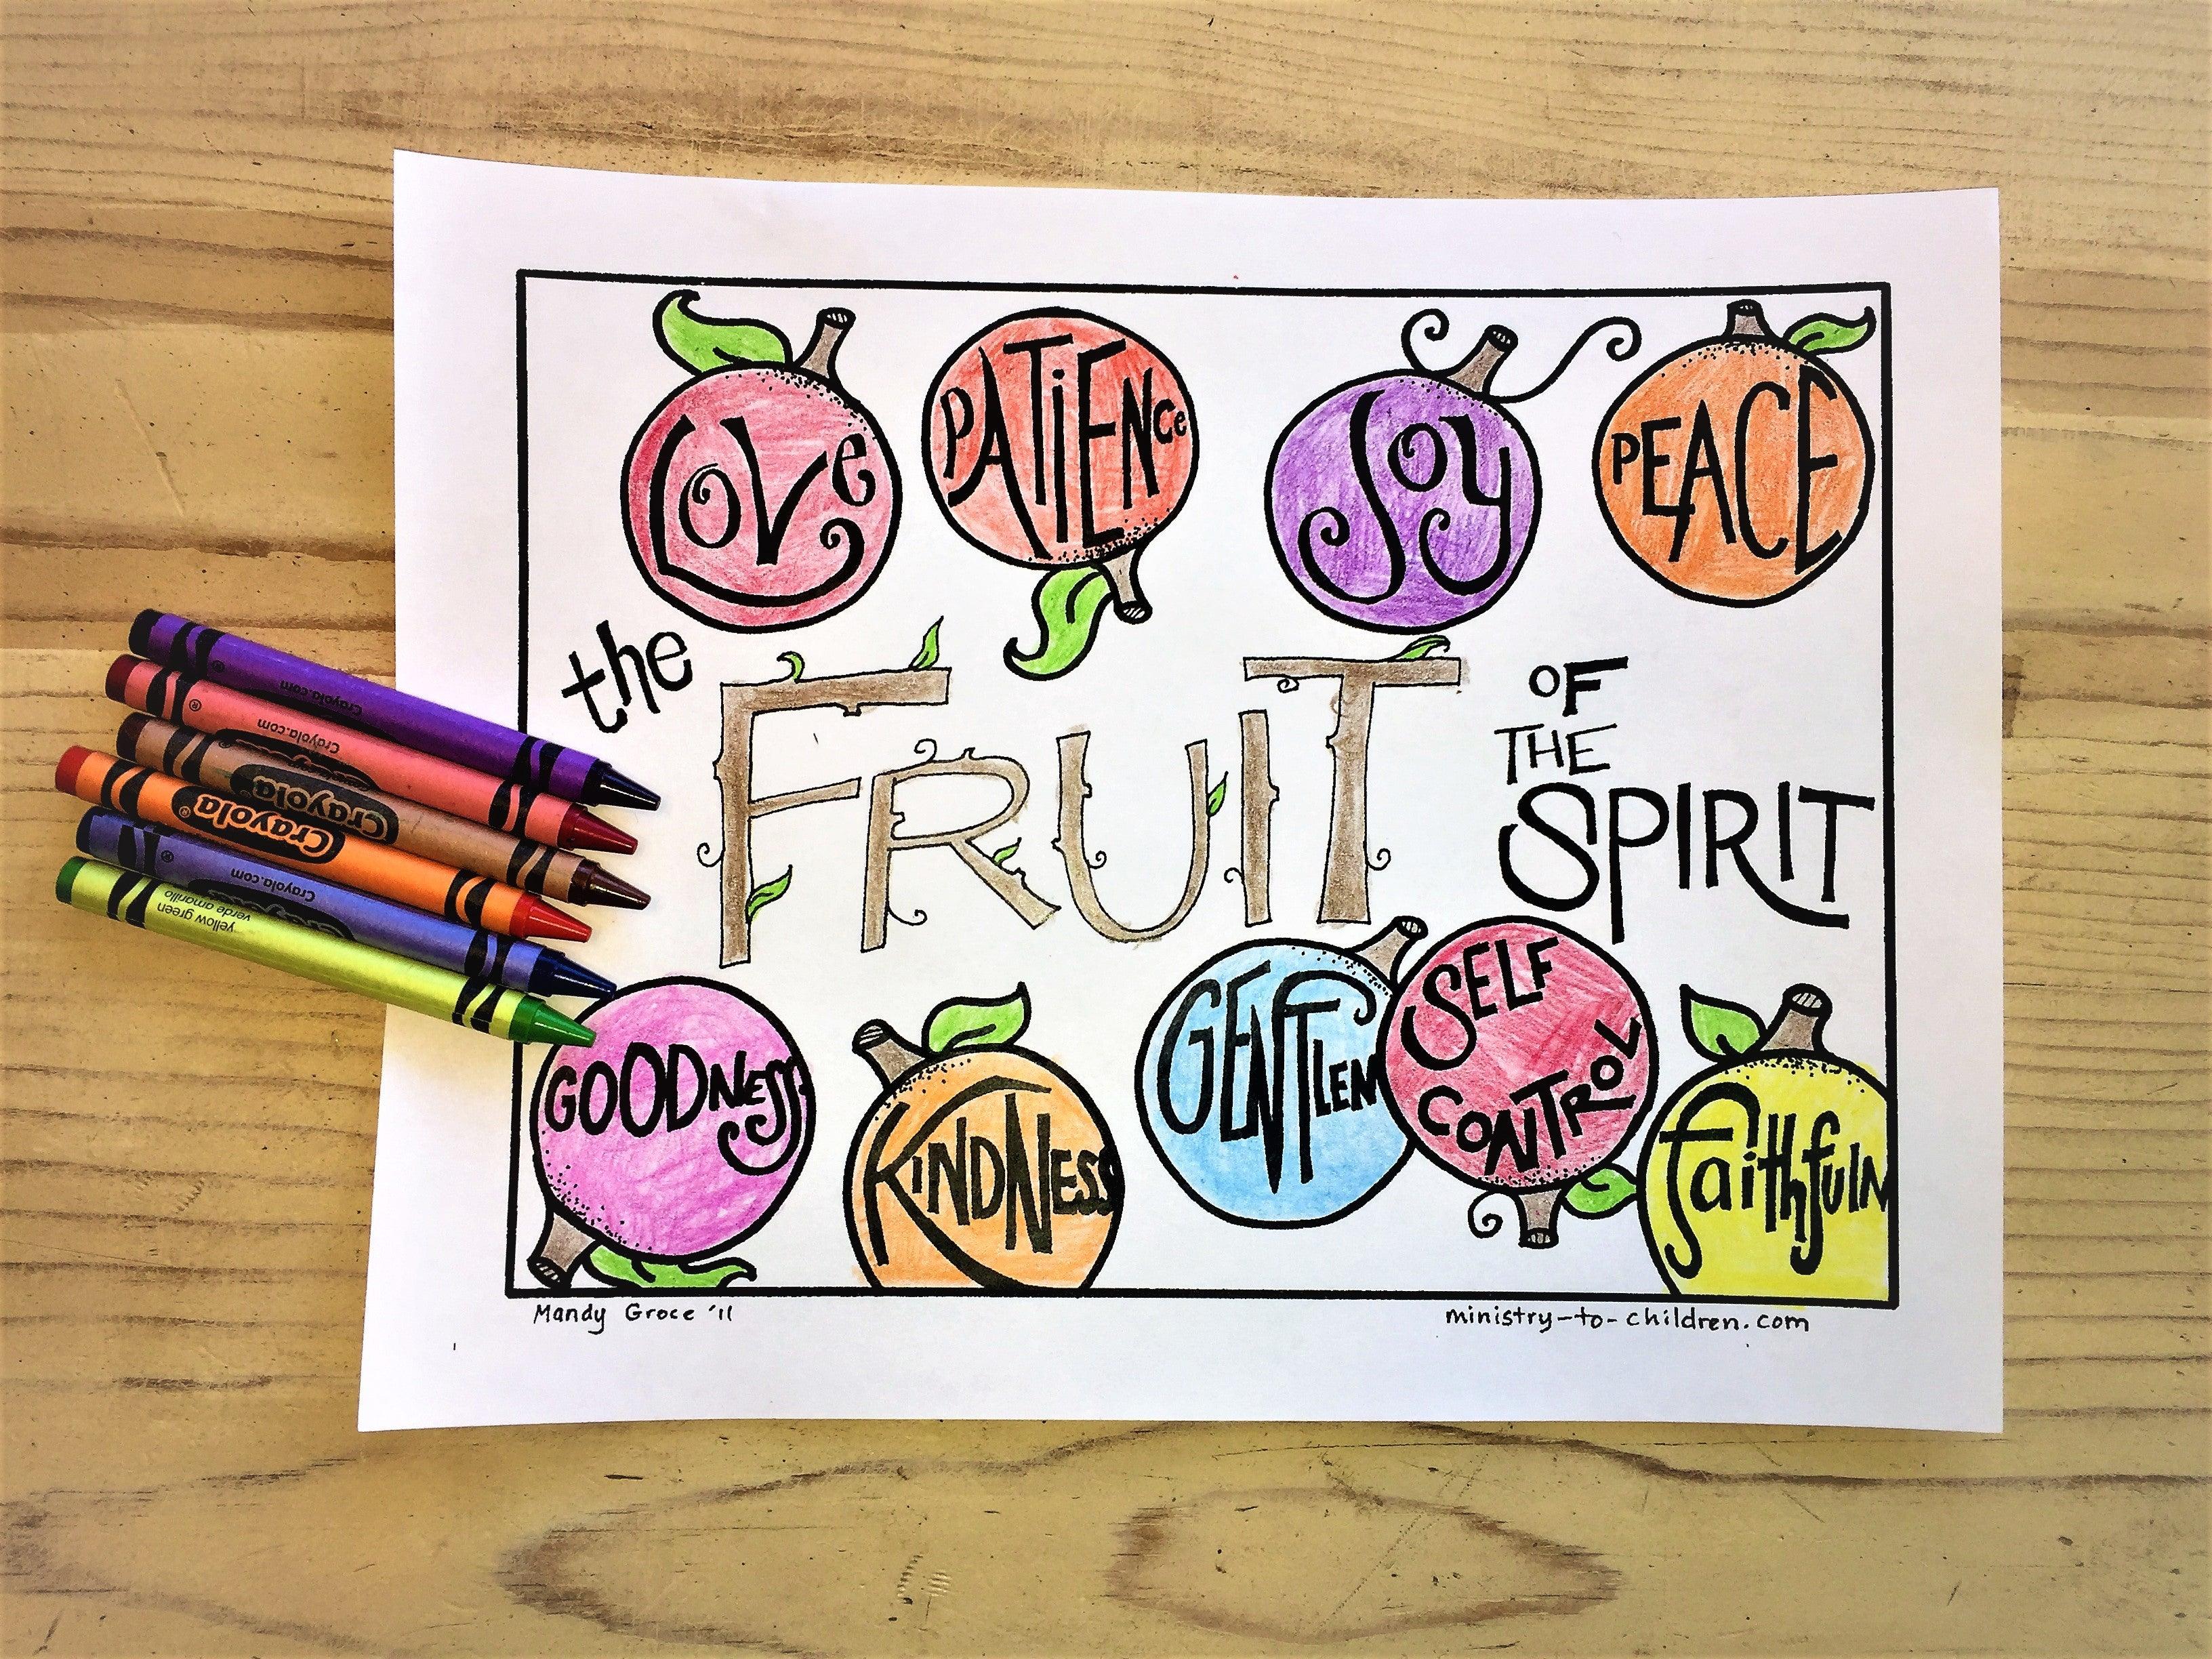 Love
PATiENce
Joy
PEACE
the
FRUIT
OF
THE
SPIRIT
Crayola.com
Crayola.com
Crayola
Crayola
Crayola.com
yellow green
verde amarillo
GOODNESS
KiNDNESS
GENTLEN
SELF
CONTROL
faithfulN
Mandy Groce '11
ministry-to-children.com